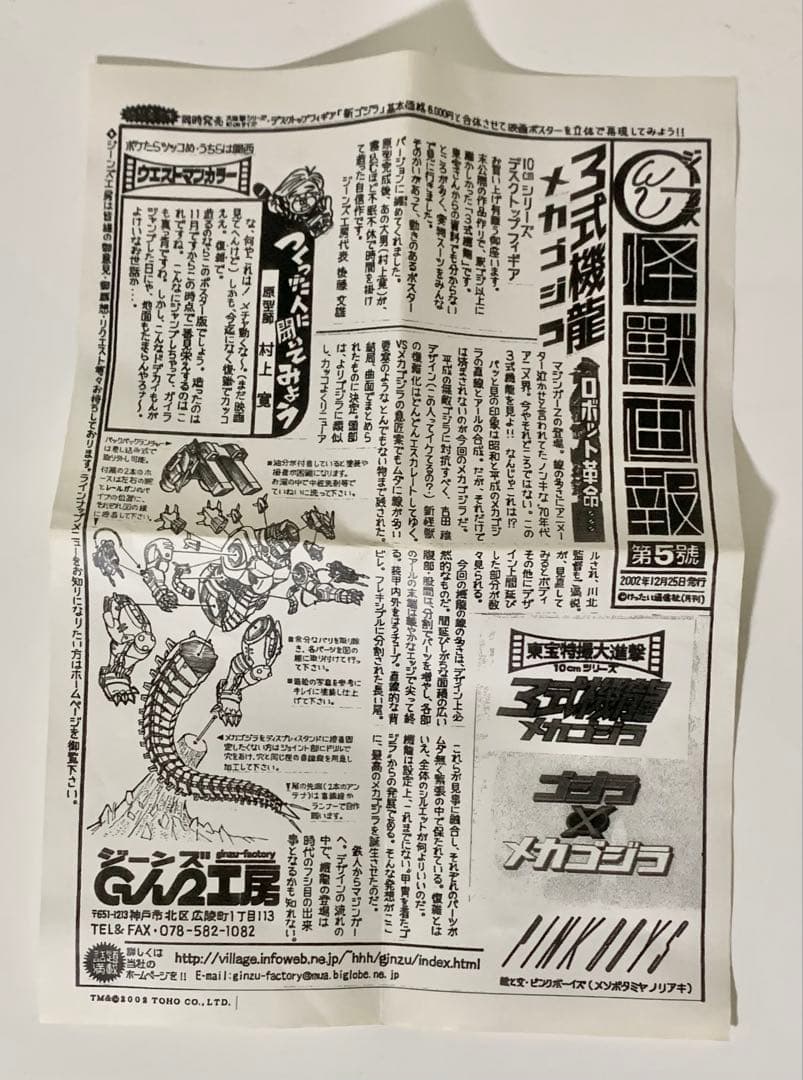 同時発売
デスクトップフィギア「新ゴジラ」基本価格6,000円と合体させて映画ポスターを立体で再現してみよう!!
ジーンズ
怪獣画報
第5號
2002年12月25日発行
©けったい通信社(月刊)
3式機龍
メカゴジラ
ロボット革命……
10cmシリーズ
デスクトップフィギア
お買い上げ有難う御座います。
未公開の作品作りで、新ゴジ以上に
難かしかった「3式機龍」です。
東宝さんからの資料でも分からない
ところが多く、実物スーツをみんな
で見に行きました。
そのかいがあって、動きのあるポスター
バージョンに纏めてくれました。
原型完成後、あの大男(村上寛)が、
寝込むほど不眠不休で時間を掛け
て造った自信作です。
ジーンズ工房代表 後藤 文雄
つくった人に聞いてみよう
原型師 村上 寛
ボケたらツッコめ・うちらは関西
ウエストマンカラー
な、何やこれは!メチャ動くな〜。(まだ映画
見てへんけど)しかも、今迄になく復雑でカッコ
ええ。復雑で。
造るのならこのポスター版でしょう。造ったのは
11月ですからこの時点で一番見栄えするのはこ
れですね。こんなにジャンプしちゃって、ガイラ
も真っ青ですね。しかし、こんなドデカイもんが
ジャンプした日にゃ、地面もたまらんやろナ〜。
よけいなお世話か…。
マジンガーZの登場。線の多さにアニメー
ター泣かせと言われてたノンキな'70年代
アニメ界。今やそれどころではない。この
3式機龍を見よ!! なんじゃこれは!?
パッと見の印象は昭和と平成のメカゴジ
ラの直線とアールの合成。だが、それだけで
は済まされないのが今回のメカゴジラだ。
平成の無敵ゴジラに対抗すべく、吉田 穣
デザイン(この人ってイケてるの?)新怪獣
の復雑化はどんどんエスカレートしてゆく。
VSメカゴジラの意匠案でもムダに線が多い
要塞のようなとんでもない物まで残された。
結局、曲面でまとめら
れたものに決定。頭部
は、よりゴジラに類似
し、カッコよくリニューア
ルされ、川北
監督も満悦。
が、見直して
みるとボディ
その他にデザ
イン上間延び
した部分が散
々見られる。
今回の機龍の線の多さは、デザイン上必
然的なものだ。間延びしがちな面積の広い
腹部・股間は、分割でパーツを増やし、各部
のアールの末端は緩やかなエッジで尖って終
る。装甲内外をはうチューブ。直線的な背
ビレ。フレキシブルに分割された長い尾。
これらが見事に融合し、それぞれのパーツが
ムダ無く緊張の中で保たれている。復雑とは
いえ、全体のシルエットが何よりいいのだ。
機龍は設定上、これまでにない、甲冑を着たゴ
ジラからの発展である。そんな発想がここ
に、最高のメカゴジラを誕生させたのだ。
鉄人からマジンガー
へ。デザインの流れの
中で、機龍の登場は
時代のフシ目の出来
事となるかも知れない。
バックパックランチャー
は差し込み式で
取り外し可能。
付属の2本のホ
ースは左右の腕
とレールガンのパ
イプの位置に、
それぞれ図の様
に接着して下さい。
■油分が付着していると塗装や
接着が困難になります。
お湯の中で中性洗剤等で
ていねいに洗って下さい。
■余分なバリを取り除
き、各パーツを図の
様に取り付けて行っ
て下さい。
■箱絵の写真を参考に
キレイに塗装し仕上
げて下さい。
◀メカゴジラをディスプレイスタンドに接着固
定したくない方はジョイント部にドリルで
穴をあけ、穴と同じ径の真鍮線を用意し
加工して下さい。
尾の先端(2本のアン
テナ)は真鍮線か
ランナーで自作
願います。
東宝特撮大進撃
10cmシリーズ
3式機龍
メカゴジラ
ゴジラ
×
メカゴジラ
PINK BOYS
絵と文・ピンクボーイズ(メソポタミヤノリアキ)
ジーンズ
ginzu-factory
Gんス工房
〒651-1213神戸市北区広陵町1丁目113
TEL&FAX・078-582-1082
詳しくは
当社の
ホームページを!!
http://village.infoweb.ne.jp/~hhh/ginzu/index.html
E-mail:ginzu-factory@mua.biglobe.ne.jp
◆ジーンズ工房は皆様の御意見・御感想・リクエスト等々お待ちしております。ラインナップメニューをお知りになりたい方はホームページを御覧下さい。
TM&©2002 TOHO CO.,LTD.